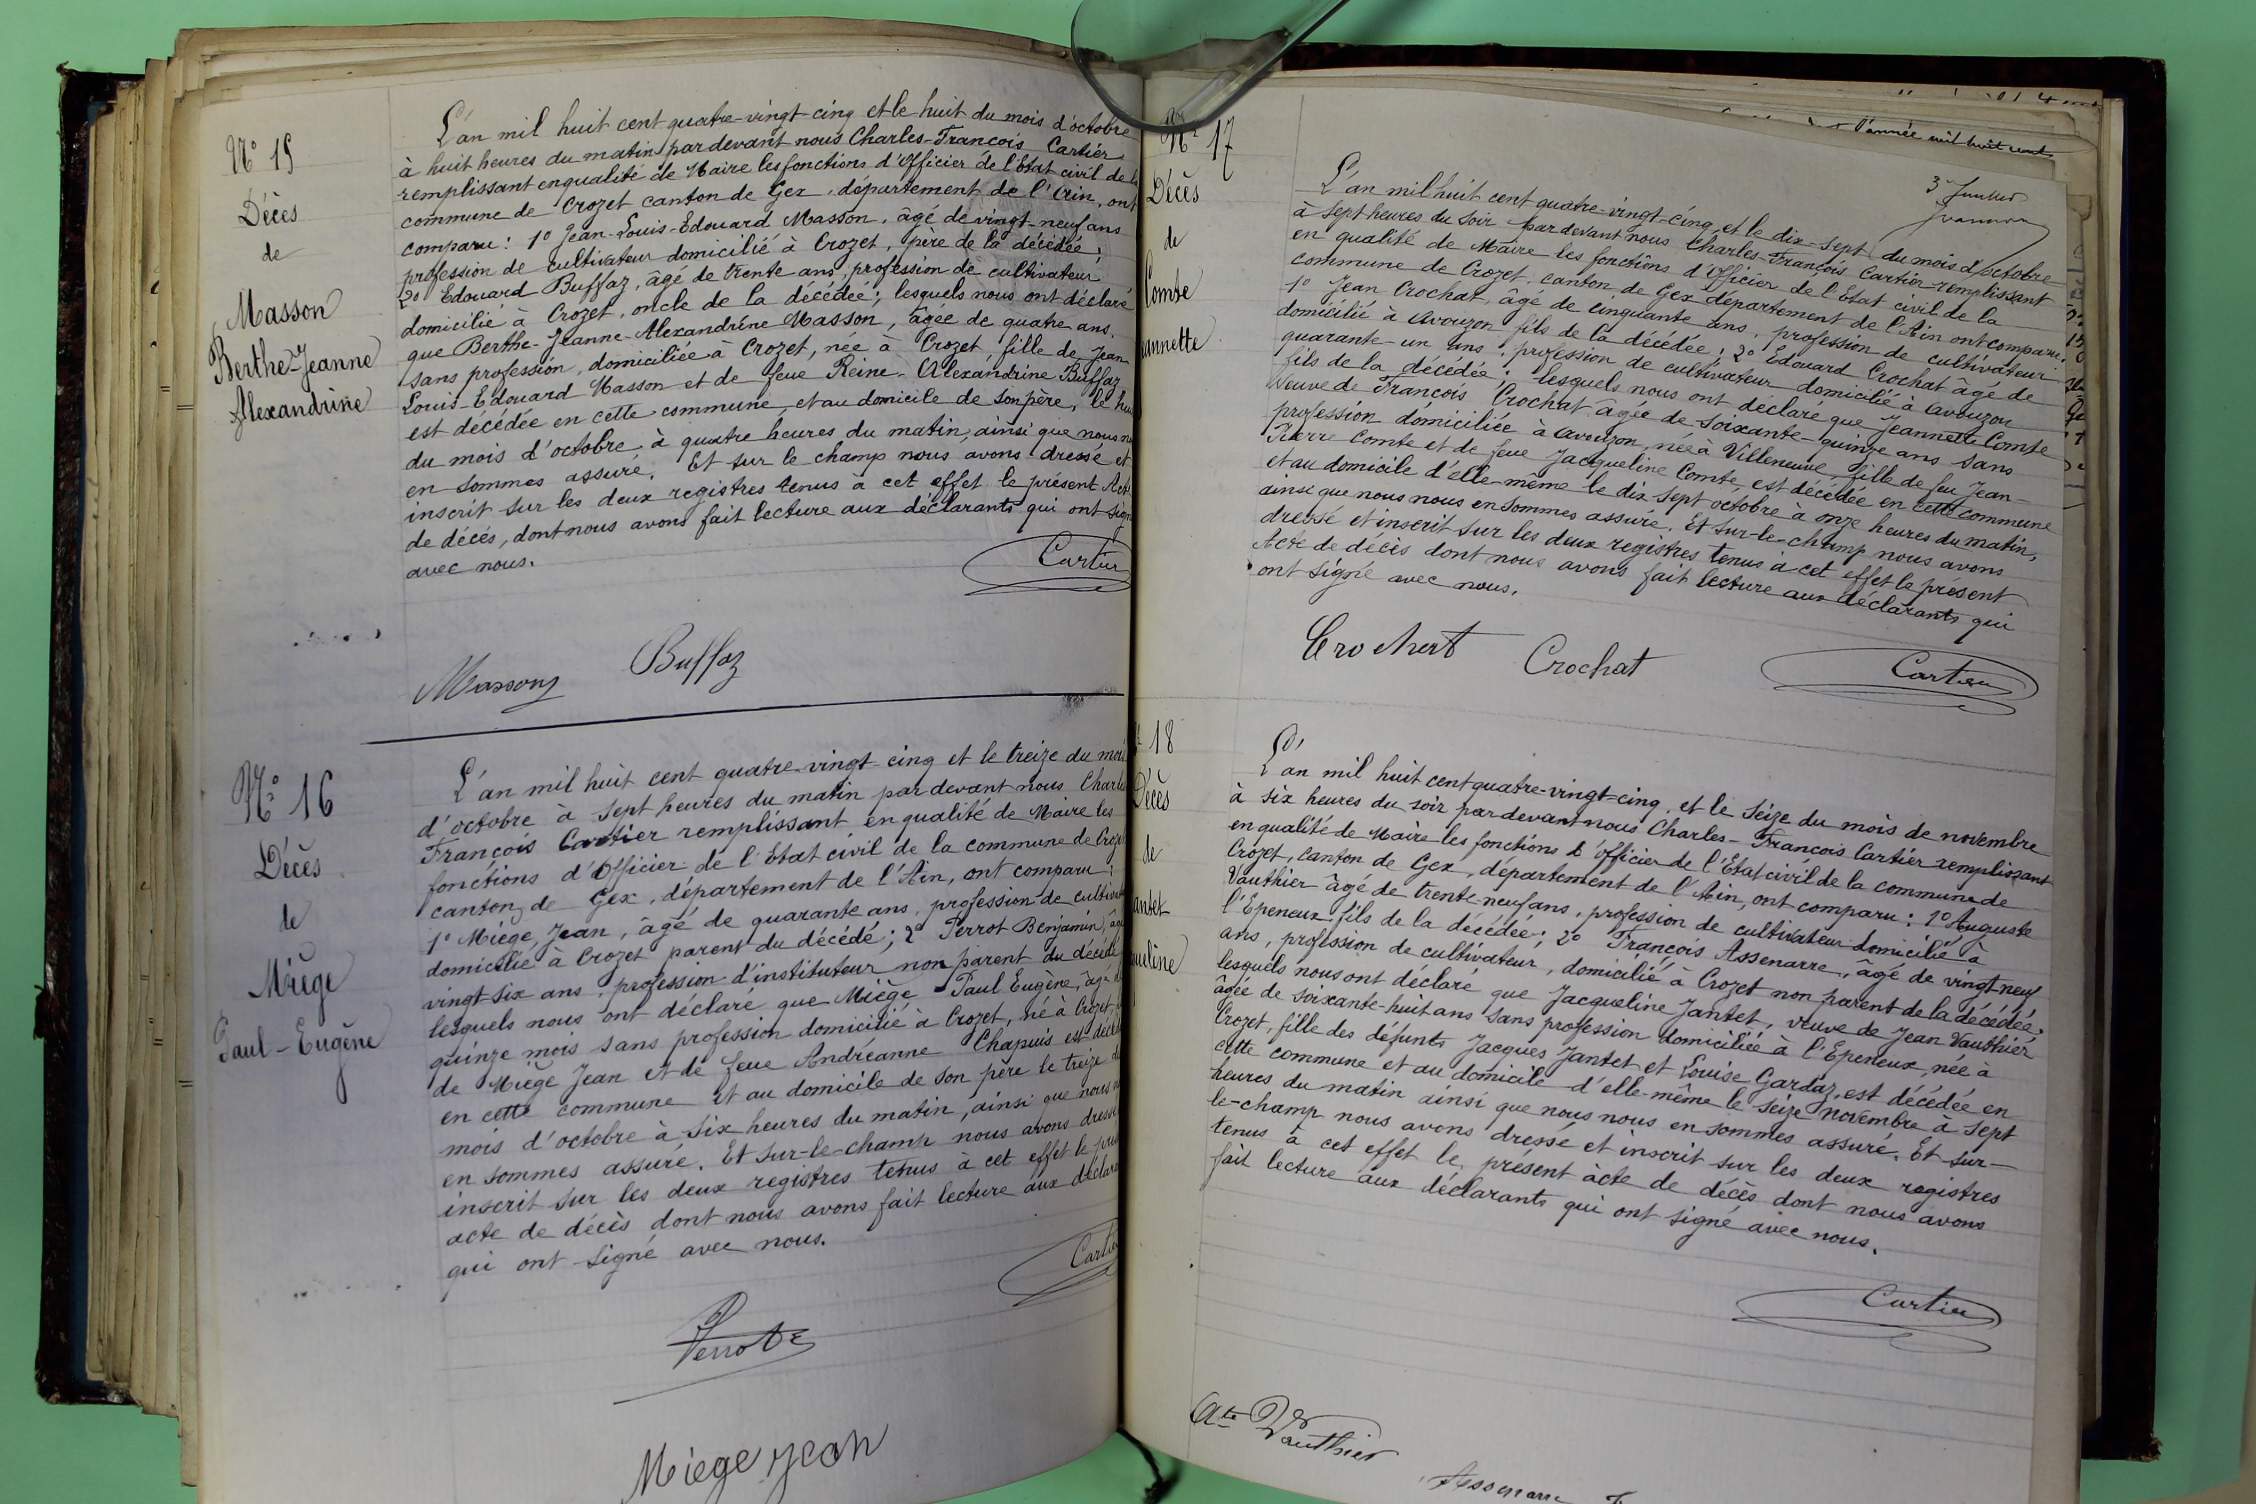 N° 15
Décès
de
Masson
Berthe-Jeanne
Alexandrine
L'an mil huit cent quatre-vingt-cinq et le huit du mois d'octobre
à huit heures du matin par devant nous Charles-François Cartier
remplissant en qualité de Maire les fonctions d'Officier de l'Etat civil de la
commune de Crozet canton de Gex, département de l'Ain, ont
comparu: 1° Jean-Louis-Edouard Masson, âgé de vingt-neuf ans
profession de cultivateur domicilié à Crozet, père de la décédée;
2° Edouard Buffaz, âgé de trente ans, profession de cultivateur
domicilié à Crozet, oncle de la décédée; lesquels nous ont déclaré
que Berthe-Jeanne-Alexandrine Masson, âgée de quatre ans
sans profession, domiciliée à Crozet, née à Crozet, fille de Jean
Louis-Edouard Masson et de feue Reine-Alexandrine Buffaz
est décédée en cette commune et au domicile de son père, le hui
du mois d'octobre à quatre heures du matin, ainsi que nous no
en sommes assuré. Et sur le champ nous avons dressé et
inscrit sur les deux registres tenus à cet effet le présent Acte
de décés, dont nous avons fait lecture aux déclarants qui ont sign
avec nous.
Cartier
Masson
Buffaz
N° 16
Décès
de
Miège
Paul-Eugène
L'an mil huit cent quatre-vingt-cinq et le treize du mois
d'octobre à sept heures du matin par devant nous Charles
François Cartier remplissant en qualité de Maire les
fonctions d'Officier de l'Etat civil de la commune de Croze
canton de Gex, département de l'Ain, ont comparu:
1° Miège Jean, âgé de quarante ans, profession de cultivat
domicilié à Crozet parent du décédé; 2° Perrot Benjamin, âg
vingt-six ans, profession d'instituteur non parent du décédé
lesquels nous ont déclaré que Miège Paul Eugène, âgé d
quinze mois sans profession domicilié à Crozet, né à Crozet,
de Miège Jean et de feue Andréanne Chapuis est décéd
en cette commune et au domicile de son père le treize d
mois d'octobre à six heures du matin, ainsi que nous n
en sommes assuré. Et sur-le-champ nous avons dressé
inscrit sur les deux registres tenus à cet effet le prés
acte de décès dont nous avons fait lecture aux déclara
qui ont signé avec nous.
Cartie
Perrot
Miege Jean
N° 17
Décès
de
Comte
eannette
3e Juillet
L'an mil huit cent quatre-vingt-cinq, et le dix-sept du mois d'octobre
à sept heures du soir par devant nous Charles-François Cartier remplissant
en qualité de Maire les fonctions d'Officier de l'Etat civil de la
commune de Crozet, canton de Gex département de l'Ain ont comparu:
1° Jean Crochat, âgé de cinquante ans, profession de cultivateur
domicilié à Avouzon fils de la décédée; 2° Edouard Crochat âgé de
quarante-un ans, profession de cultivateur domicilié à Avouzon
fils de la décédée; lesquels nous ont déclaré que Jeannette Comte
Veuve de François Crochat âgée de soixante-quinze ans sans
profession domiciliée à Avouzon, née à Villeneuve, fille de feu Jean-
Pierre Comte et de feue Jacqueline Comte, est décédée en cette commune
et au domicile d'elle-même le dix-sept octobre à onze heures du matin,
ainsi que nous nous en sommes assuré. Et sur-le-champ nous avons
dressé et inscrit sur les deux registres tenus à cet effet le présent
Acte de décès dont nous avons fait lecture aux déclarants qui
ont signé avec nous.
Crochert
Crochat
Cartier
18
Décès
de
antet
ueline
L'an mil huit cent quatre-vingt-cinq, et le seize du mois de novembre
à six heures du soir par devant nous Charles-François Cartier remplissant
en qualité de Maire les fonctions d'Officier de l'Etat civil de la commune de
Crozet, canton de Gex, département de l'Ain, ont comparu: 1° Auguste
Vauthier âgé de trente-neuf ans, profession de cultivateur domicilié à
l'Epeneux fils de la décédée; 2° François Assenarre, âgé de vingt-neuf
ans, profession de cultivateur, domicilié à Crozet non parent de la décédée;
lesquels nous ont déclaré que Jacqueline Jantet, veuve de Jean Vauthier
âgée de soixante-huit ans sans profession domiciliée à l'Epeneux, née à
Crozet, fille des défunts Jacques Jantet et Louise Gardaz, est décédée en
cette commune et au domicile d'elle-même le seize novembre à sept
heures du matin ainsi que nous nous en sommes assuré. Et sur-
le-champ nous avons dressé et inscrit sur les deux registres
tenus à cet effet le présent àcte de décès dont nous avons
fait lecture aux déclarants qui ont signé avec nous.
Cartier
Ate Vauthier
Assenarre
l'année mil huit cent